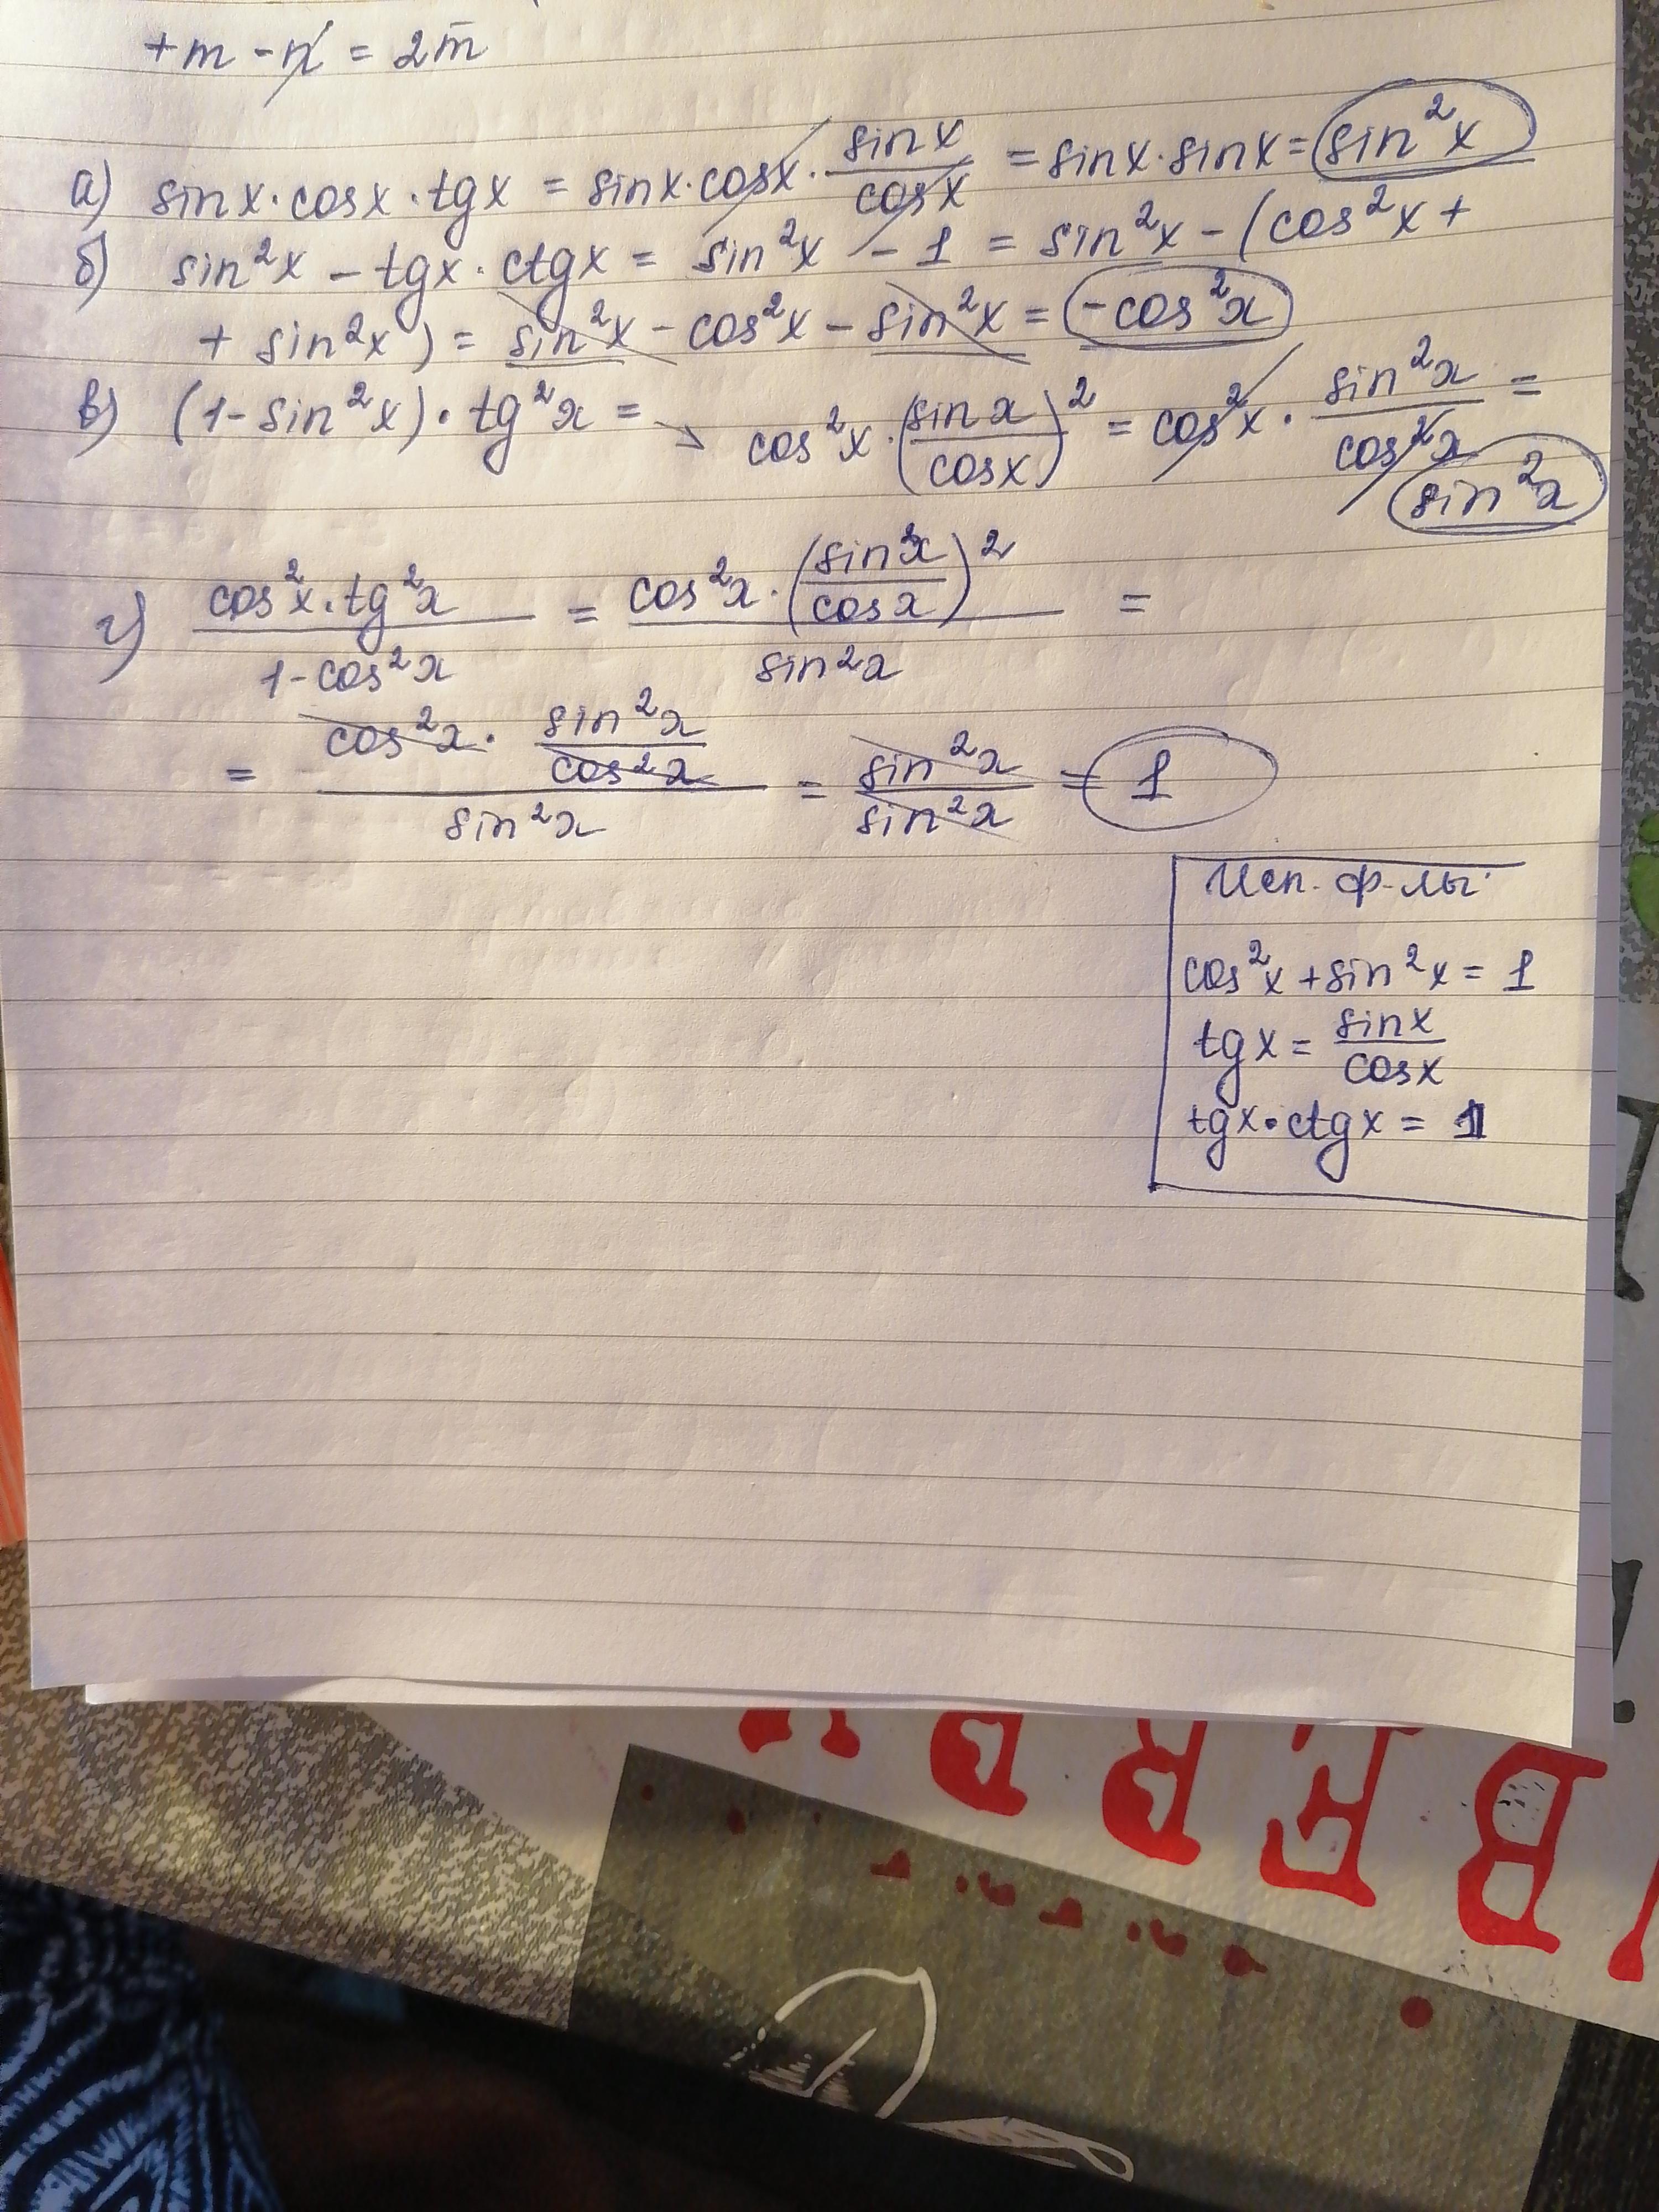 +m - n = 2m̄
а) sinx·cosx·tgx = sinx·cosx·sinx/cosx = sinx·sinx = sin²x
б) sin²x - tgx·ctgx = sin²x - 1 = sin²x - (cos²x +
+ sin²x) = sin²x - cos²x - sin²x = -cos²x
в) (1-sin²x)·tg²x = → cos²x·(sinx/cosx)² = cos²x·sin²x/cos²x =
sin²x
г) cos²x·tg²x/1-cos²x = cos²x·(sinx/cosx)²/sin²x =
= cos²x·sin²x/cos²x/sin²x = sin²x/sin²x = 1
Исп. ф-лы:
cos²x + sin²x = 1
tgx = sinx/cosx
tgx·ctgx = 1